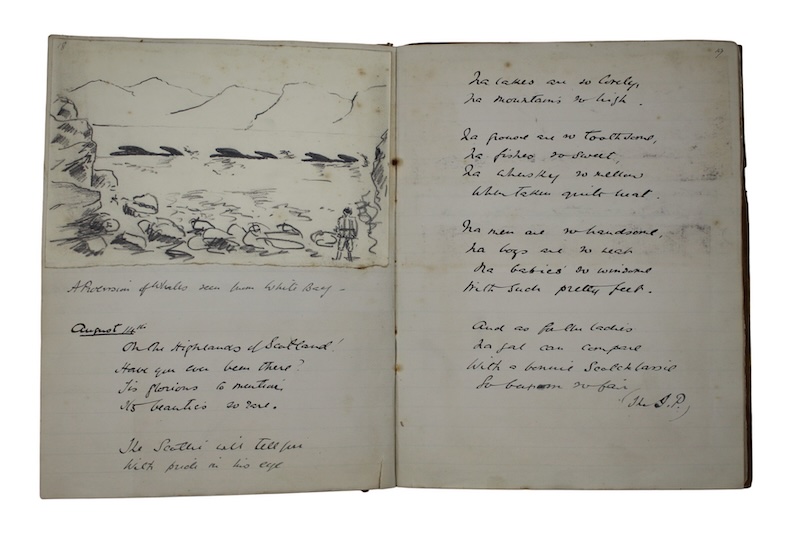 A Procession of Whales seen from White Bay –
August 14th
Oh the Highlands of Scotland!
Have you ever been there?
Tis glorious to mention
Its beauties so rare.
The Scottie will tell you
With pride in his eye
19
Na lakes are so lovely,
Na mountains so high.
Na grouse are so toothsome,
Na fishes so sweet,
Na whisky so mellow
When taken quite neat.
Na men are so handsome,
Na boys are so
Na babies so winsome
With such pretty feet.
And as for the ladies
Na gal can compare
With a bonnie Scotch lassie
So buxom so fair
(The J.P.)